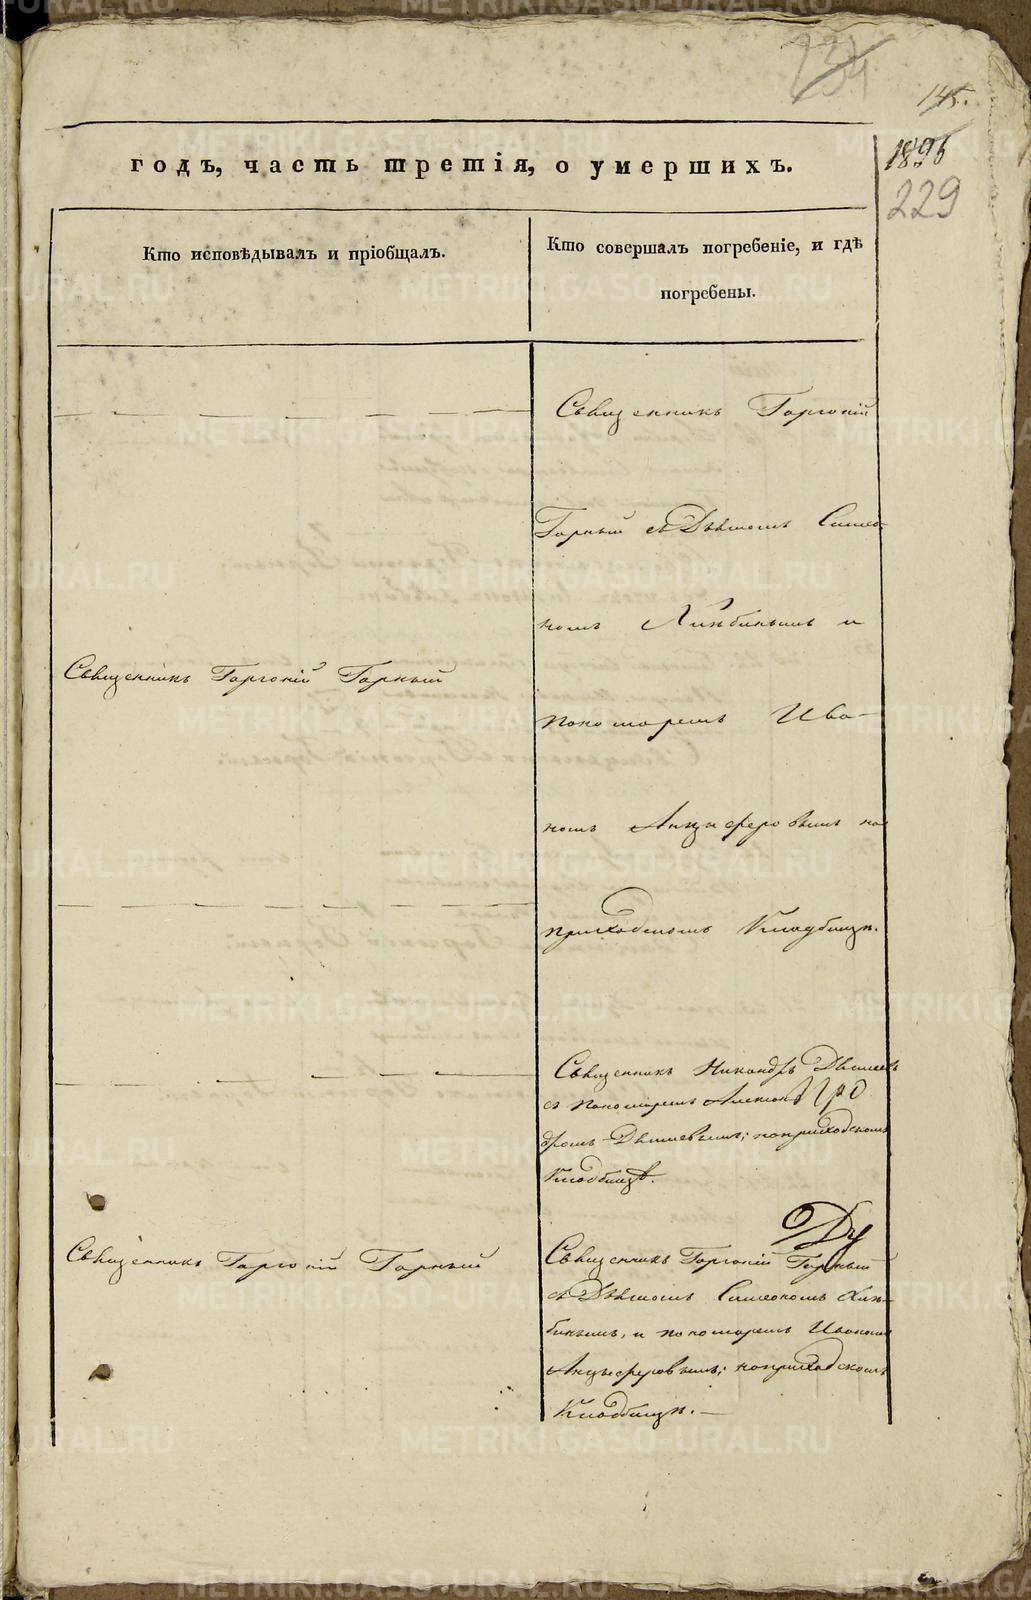 234
145.
годъ, часть третія, о умершихъ.
229
Кто исповѣдывалъ и пріобщалъ.
Кто совершалъ погребеніе, и гдѣ
погребены.
Священникъ Горгоній
Горный съ Дьячкомъ Симео-
номъ и
пономаремъ Ива-
номъ Анцыферовымъ на
приходскомъ Кладбищѣ.
Священникъ Горгоній Горный
Священникъ Никандръ
съ пономаремъ Алексан
дромъ на приходскомъ
Кладбищѣ.
Священникъ Горгоній Горный
Священникъ Горгоній Горный
съ Дьячкомъ Симеономъ
и пономаремъ Иваномъ
Анцыферовымъ; на приходскомъ
Кладбищѣ.
METRIKI.GASO-URAL.RU